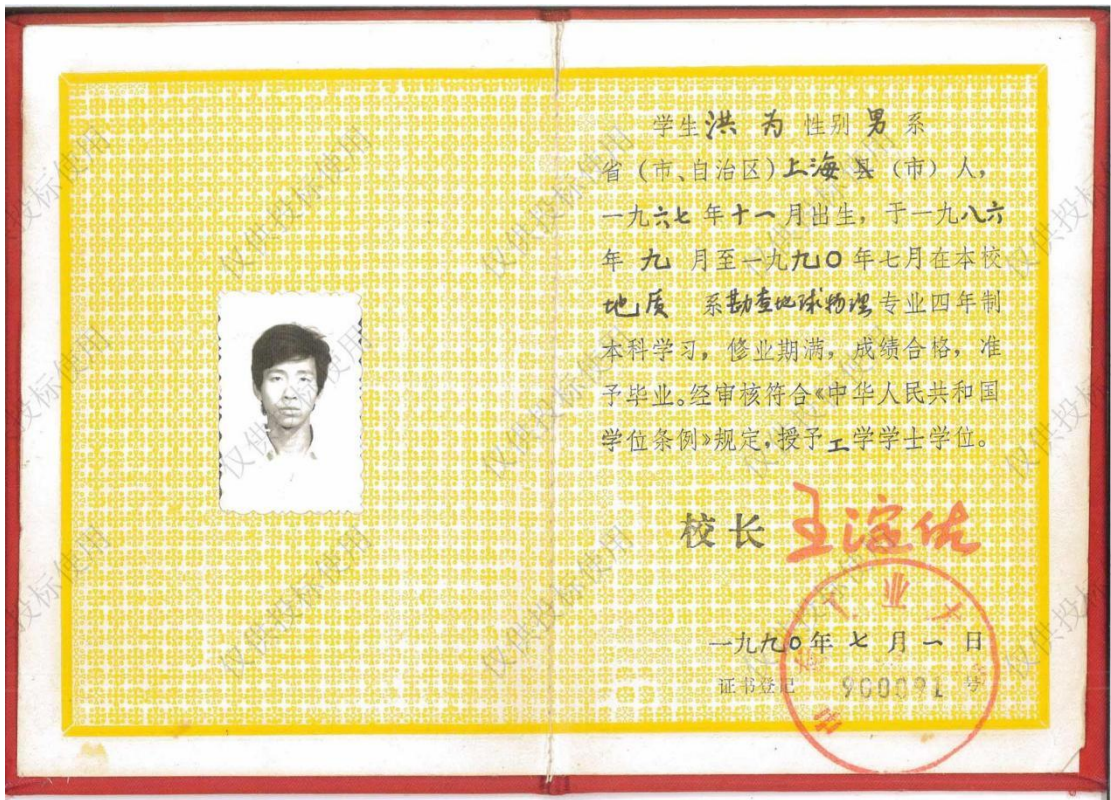 学生洪为 性别男系
省（市、自治区）上海县（市）人，
一九六七年十一月出生，于一九八六
年九月至一九九〇年七月在本校
地质系勘查地球物理专业四年制
本科学习，修业期满，成绩合格，准
予毕业。经审核符合《中华人民共和国
学位条例》规定，授予工学学士学位。
校长 王淀佐
一九九〇年七月一日
证书登记 900091 号
仅供投标使用